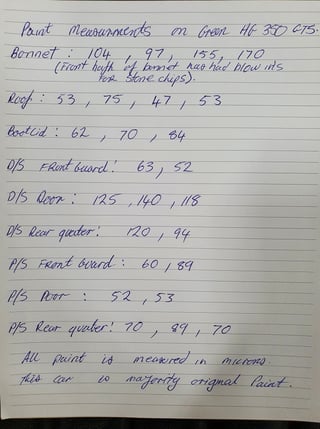 Paint Measurements on Green HG 350 GTS.
Bonnet : 104 , 97 , 155 , 170
(Front half of bonnet has had blow ins
for stone chips).
Roof : 53 , 75 , 47 , 53
Bootlid : 62 , 70 , 84
D/S Front guard : 63 , 52
D/S Door : 125 , 140 , 118
D/S Rear quater : 120 , 94
P/S Front Guard : 60 , 89
P/S Door : 52 , 53
P/S Rear quater : 70 , 89 , 70
All paint is measured in microns.
this car is majority original paint.